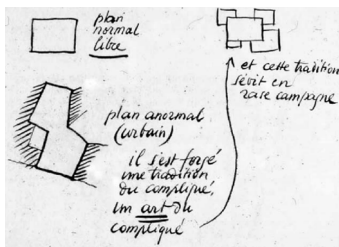 plan
normal
libre
et cette tradition
sévit en
rase campagne
plan anormal
(urbain)
il s'est forgé
une tradition
du compliqué,
un art du
compliqué